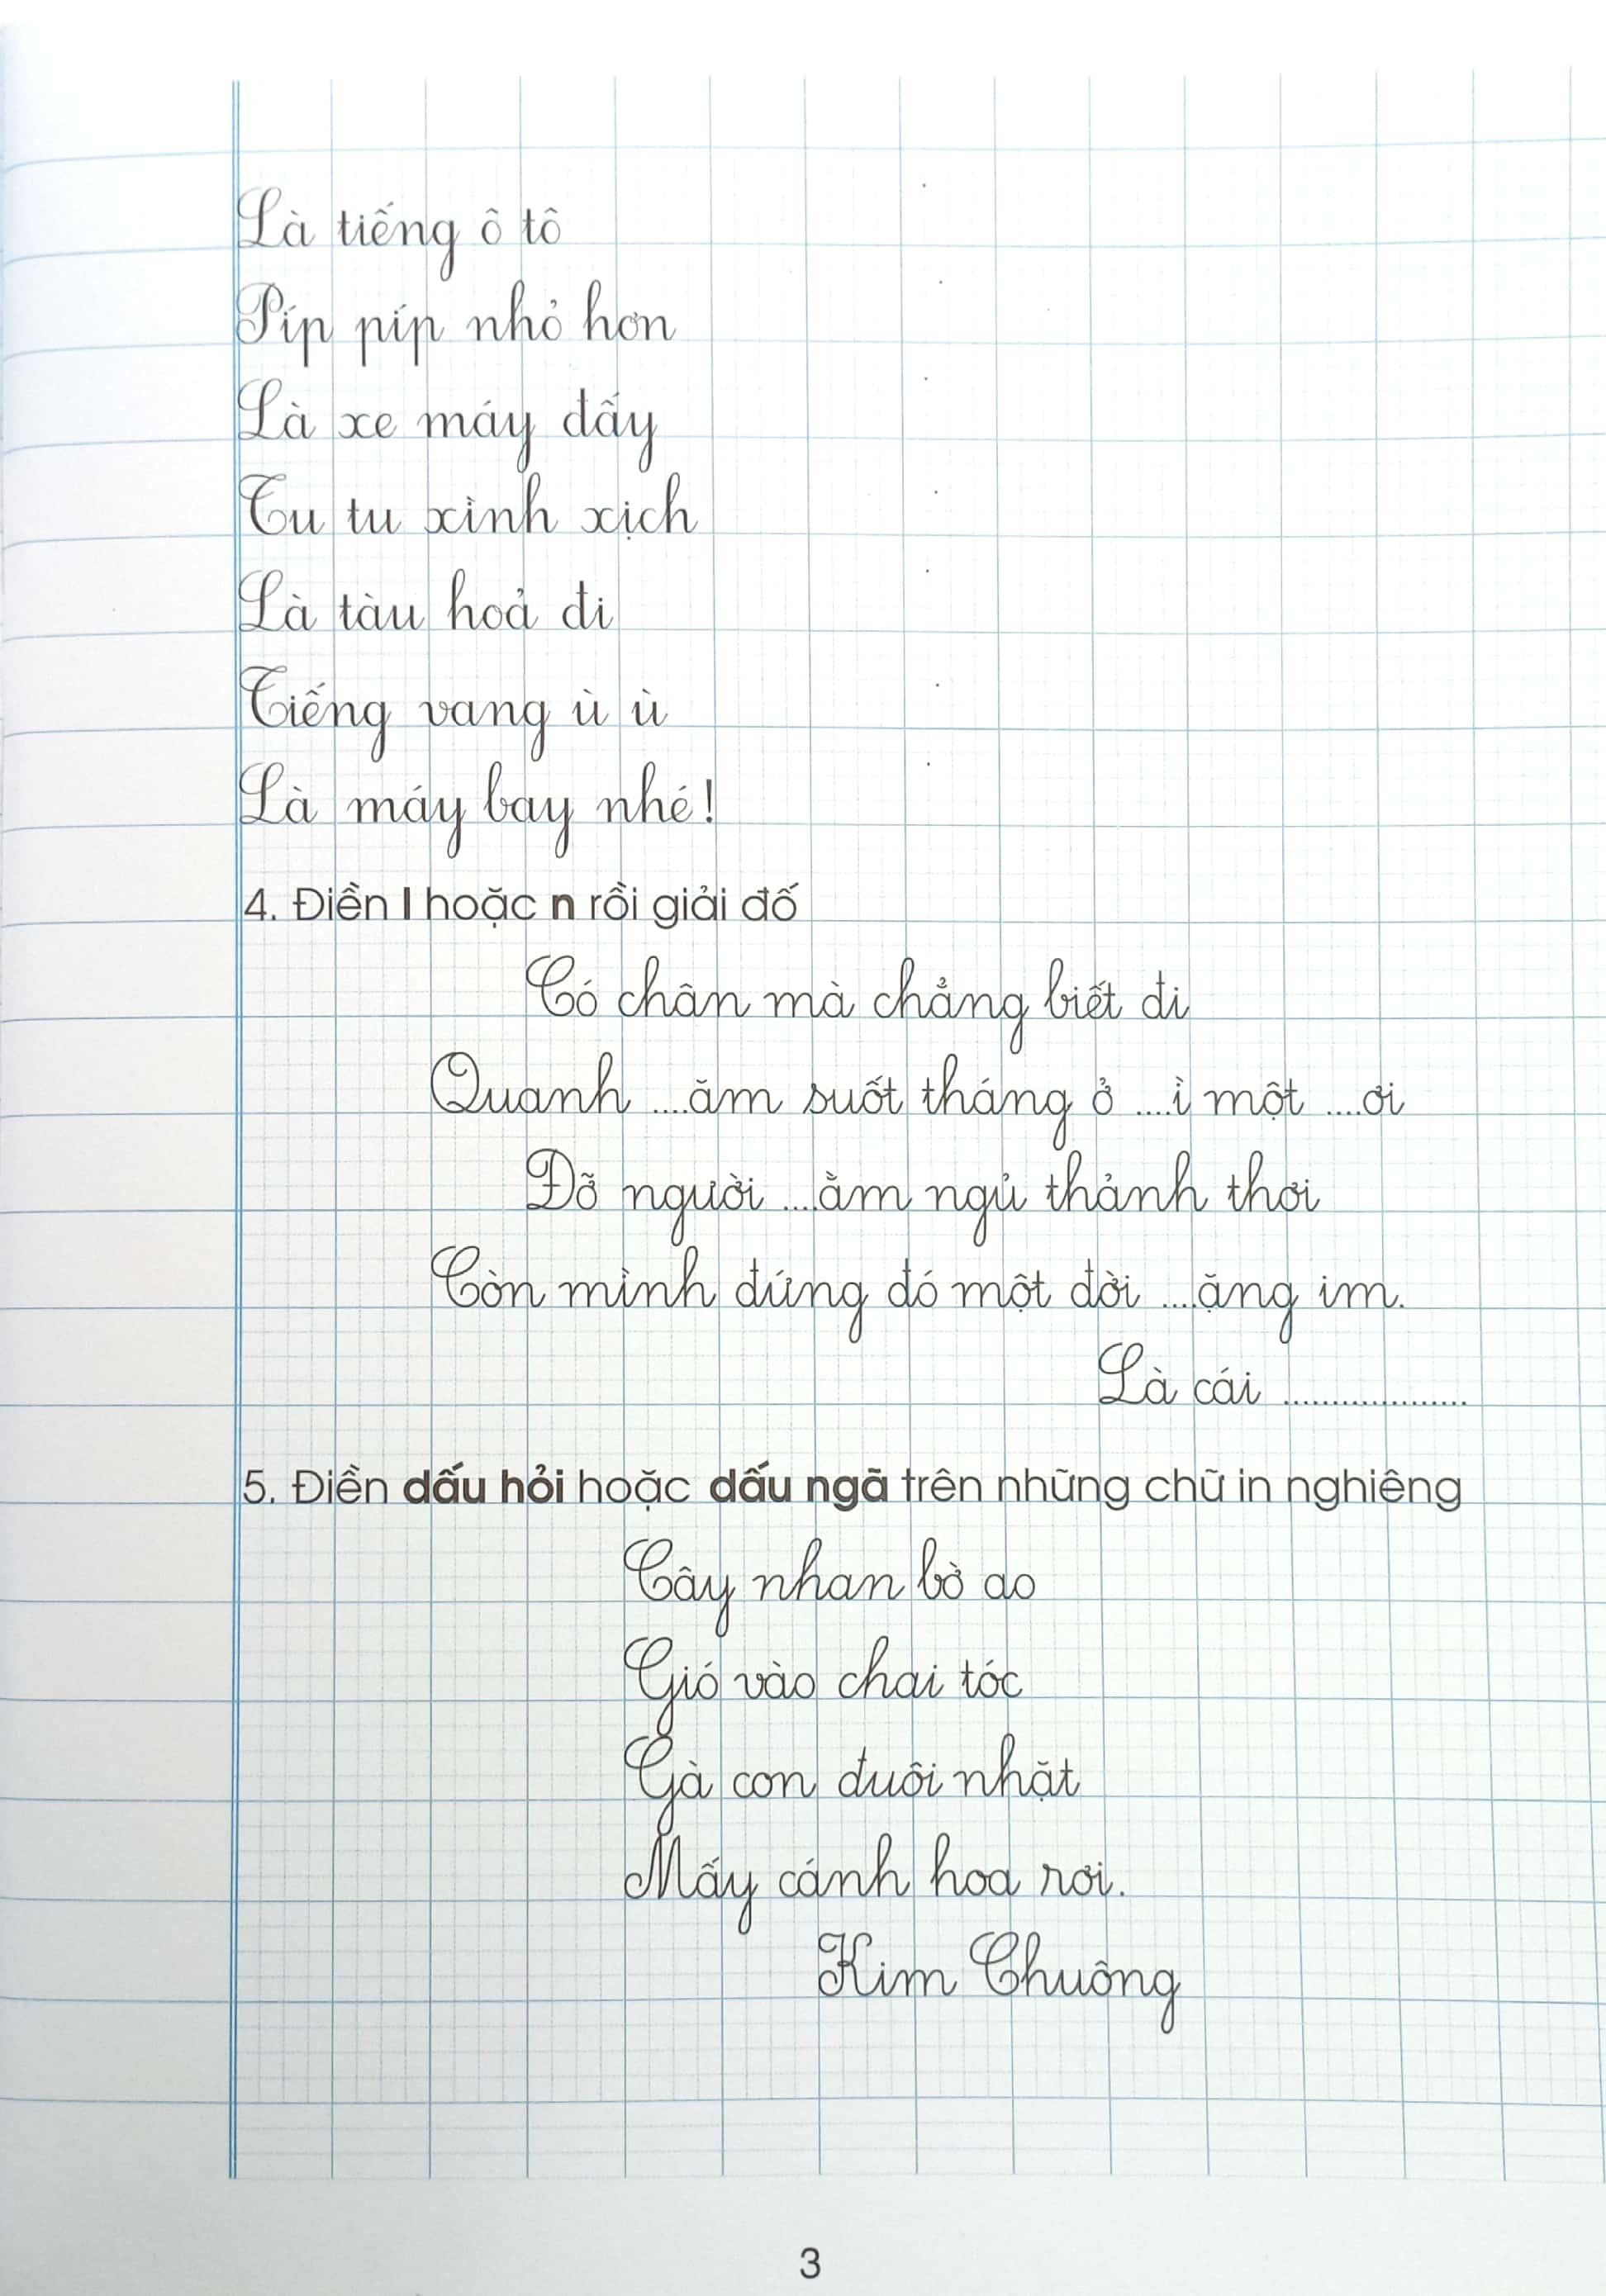 Là tiếng ô tô
Píp píp nhỏ hơn
Là xe máy đấy
Tu tu xình xịch
Là tàu hoả đi
Tiếng vang ù ù
Là máy bay nhé!
4. Điền l hoặc n rồi giải đố
Có chân mà chẳng biết đi
Quanh ....ăm suốt tháng ở ....ì một ....ơi
Đỡ người ....ằm ngủ thảnh thơi
Còn mình đứng đó một đời ....ặng im.
Là cái ...................
5. Điền dấu hỏi hoặc dấu ngã trên những chữ in nghiêng
Cây nhan bờ ao
Gió vào chai tóc
Gà con đuôi nhặt
Mấy cánh hoa rơi.
Kim Chuông
3